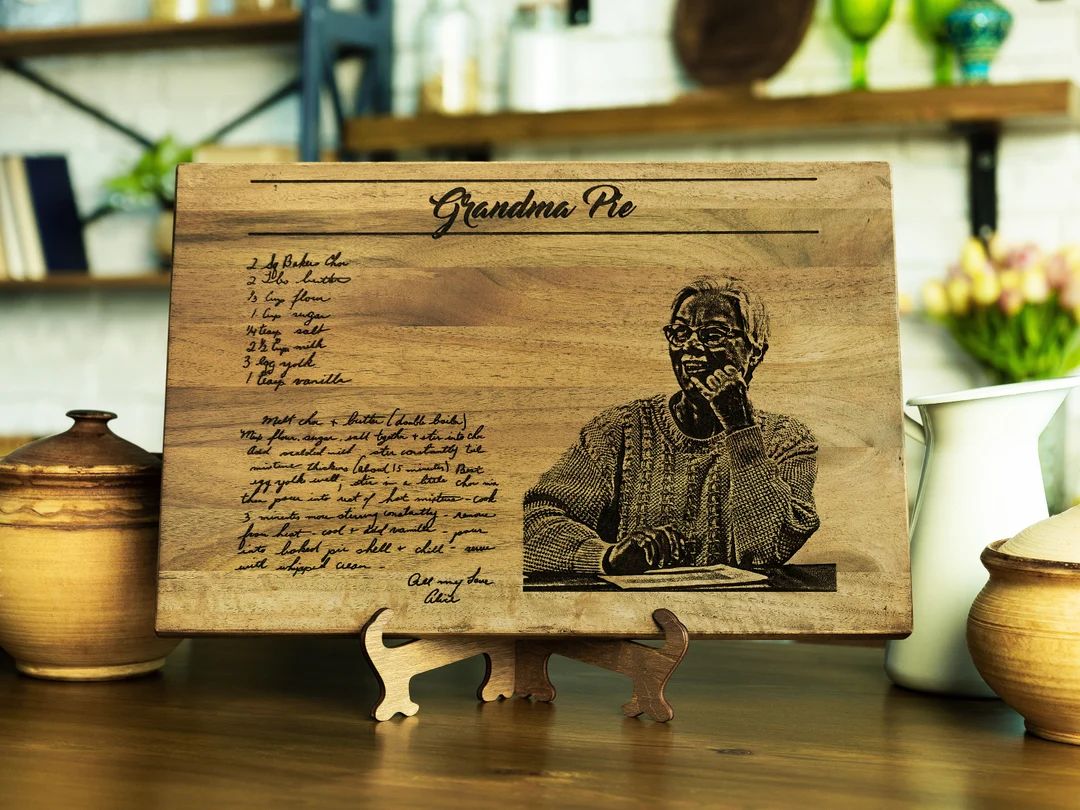 Grandma Pie
2 Sq Bakers Choc
2 Tbs butter
1/3 Cup flour
1 Cup sugar
1/4 teasp salt
2 1/2 Cup milk
3 Egg yolk
1 teasp vanilla
Melt choc + butter (double boiler)
Mix flour, sugar, salt together + stir into choc
Add scalded milk, stir constantly til
mixture thickens (about 15 minutes) Beat
egg yolks well, stir in a little choc mix
then pour into rest of hot mixture - cook
3 minutes more stirring constantly - remove
from heat - cool + add vanilla - pour
into baked pie shell + chill - serve
with whipped cream -
All my love
Alice